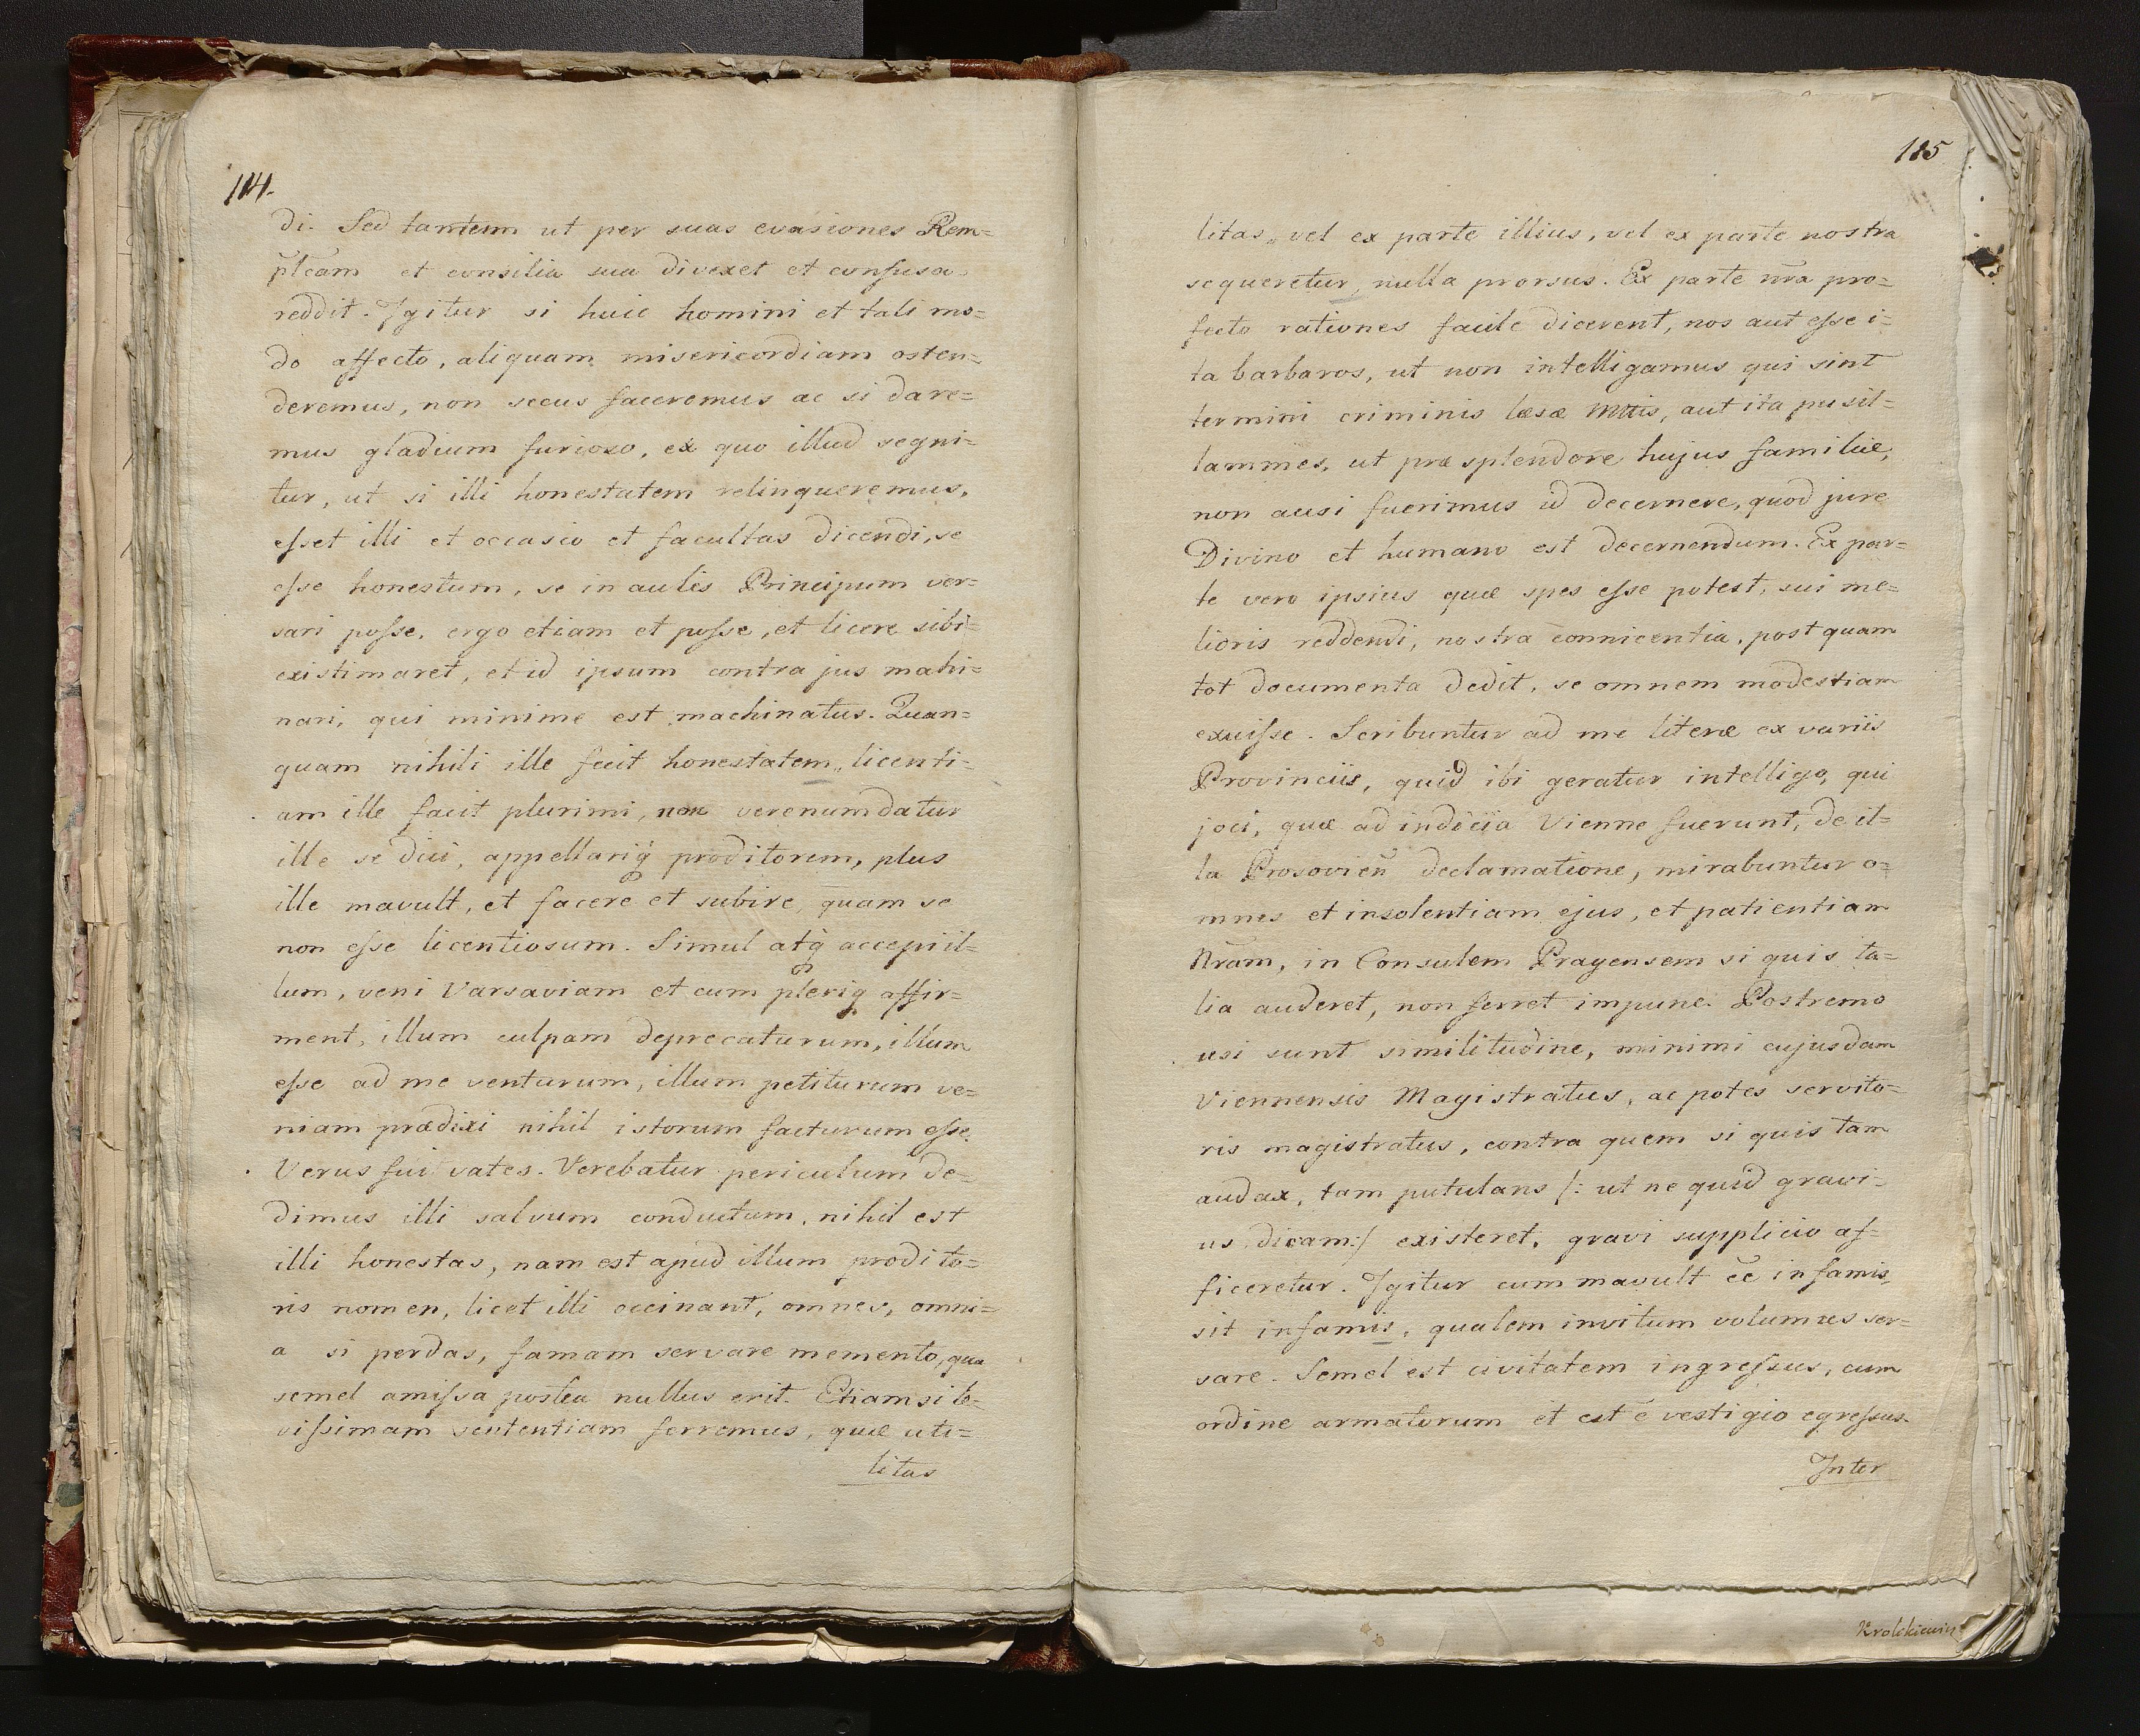 114.
di. Sed tantem ut per suas evasiones Rem=
pl̃cam et consilia sua divexet et confusa
reddit. Igitur si huic homini et tali mo=
do affecto, aliquam misericordiam osten=
deremus, non secus faceremus ac si dare=
mus gladium furioso, ex quo illud segni=
tur, ut si illi honestatem relinqueremus,
esset illi et occasio et facultas dicendi, se
esse honestum, se in aulis Principum ver=
sari posse, ergo etiam et posse, et licere sibi
existimaret, et id ipsum contra jus machi=
nari, qui minime est machinatus. Quan=
quam nihili ille fecit honestatem, licenti=
am ille facit plurimi, non verenum datur
ille se dici, appellariq̃ proditorem, plus
ille mavult, et facere et subire quam se
non esse licentiosum. Simul atq̃ accepi il=
lum, veni Varsaviam et cum pleriq̃ affir=
ment, illum culpam deprecaturum, illum
esse ad me venturum, illum petiturum ve=
niam prædixi nihil istorum facturum esse.
Verus fui vates. Verebatur periculum de=
dimus illi salvum conductum, nihil est
illi honestas, nam est apud illum prodito=
ris nomen, licet illi occinant, omnes, omni=
a si perdas, famam servare memento, qua
semel amissa postea nullus erit. Etiam si le=
vissimam sententiam ferremus, quæ uti=
litas
115
litas, vel ex parte illius, vel ex parte nostra
sequeretur, nulla prorsus. Ex parte nr̃a pro=
fecto rationes facile dicerent, nos aut esse i=
ta barbaros, ut non intelligamus qui sint
termini criminis læsæ Mttis, aut ita pusil=
lanimes, ut præ splendore hujus familiæ,
non ausi fuerimus id decernere, quod jure
Divino et humano est decernendum. Ex par=
te vero ipsius quæ spes esse potest, sui me=
lioris reddendi, nostra connicentia, post quam
tot documenta dedit, se omnem modestiam
exuisse. Scribuntur ad me literæ ex variis
Provinciis, quid ibi geratur intelligo, qui
joci, quæ ad indicia Vienne fuerunt, de il=
la Prosovien̄ declamatione, mirabuntur o=
mnes et insolentiam ejus, et patientiam
Nr̃am, in Consulem Pragensem si quis ta=
lia auderet, non ferret impune. Postremo
usi sunt similitudine, minimi cujusdam
Viennensis Magistratus, ac potes servito=
ris magistratus, contra quem si quis tam
audax, tam putulans /: ut ne quid gravi=
us dicam:/ existeret, gravi supplicio af=
ficeretur. Igitur cum mavult ēē infamis,
sit infamis, qualem invitum volumus ser=
vare. Semel est civitatem ingressus, cum
ordine armatorum et est e vestigio egressus.
Inter